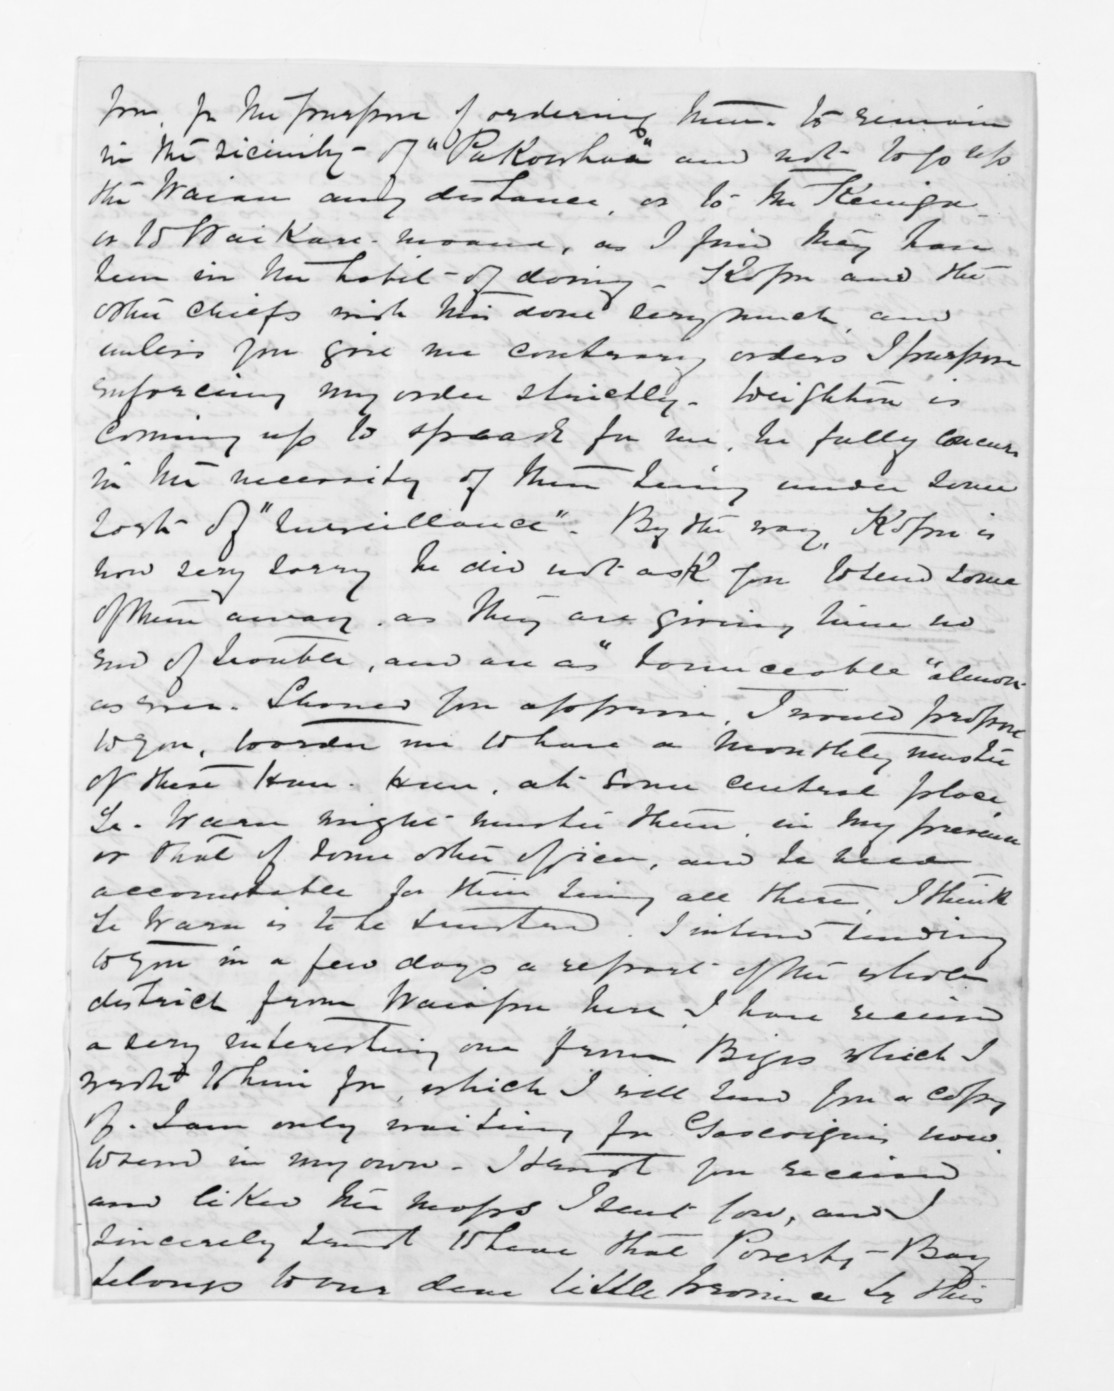 you, for the purpose of ordering them to remain
in the vicinity of "Pakowhai" and not to go up
the Waiau any distance, or to the
or to WaiKare-moana, as I find they have
been in the habit of doing. Kopu and the
other chiefs wish this done very much, and
unless you give me contrary orders I purpose
enforcing my order strictly. Deighton is
coming up to speak for me, he fully concurs
in the necessity of them being under some
sort of "surveillance". By the way, Kopu is
now very sorry he did not ask you to send some
of them away, as they are giving him no
end of trouble, and are as almost
as ever. Should you approve, I would propose
to you, to order me to have a monthly muster
of these Hau. Hau. at some central place,
Te. Waru might muster them, in my presence
or that of some other officer, and be held
accountable for their being all there, I think
Te Waru is to be trusted. I intend sending
to you in a few days a report of the whole
district from Waiapu here, I have received
a very interesting one from Bigs which I
wrote to him for, which I will send you a copy
of. I am only waiting for Gascoigne's now
to send in my own. I trust you received
and liked the maps I sent you, and I
sincerely trust to hear that Poverty-Bay
belongs to our dear little Province by this